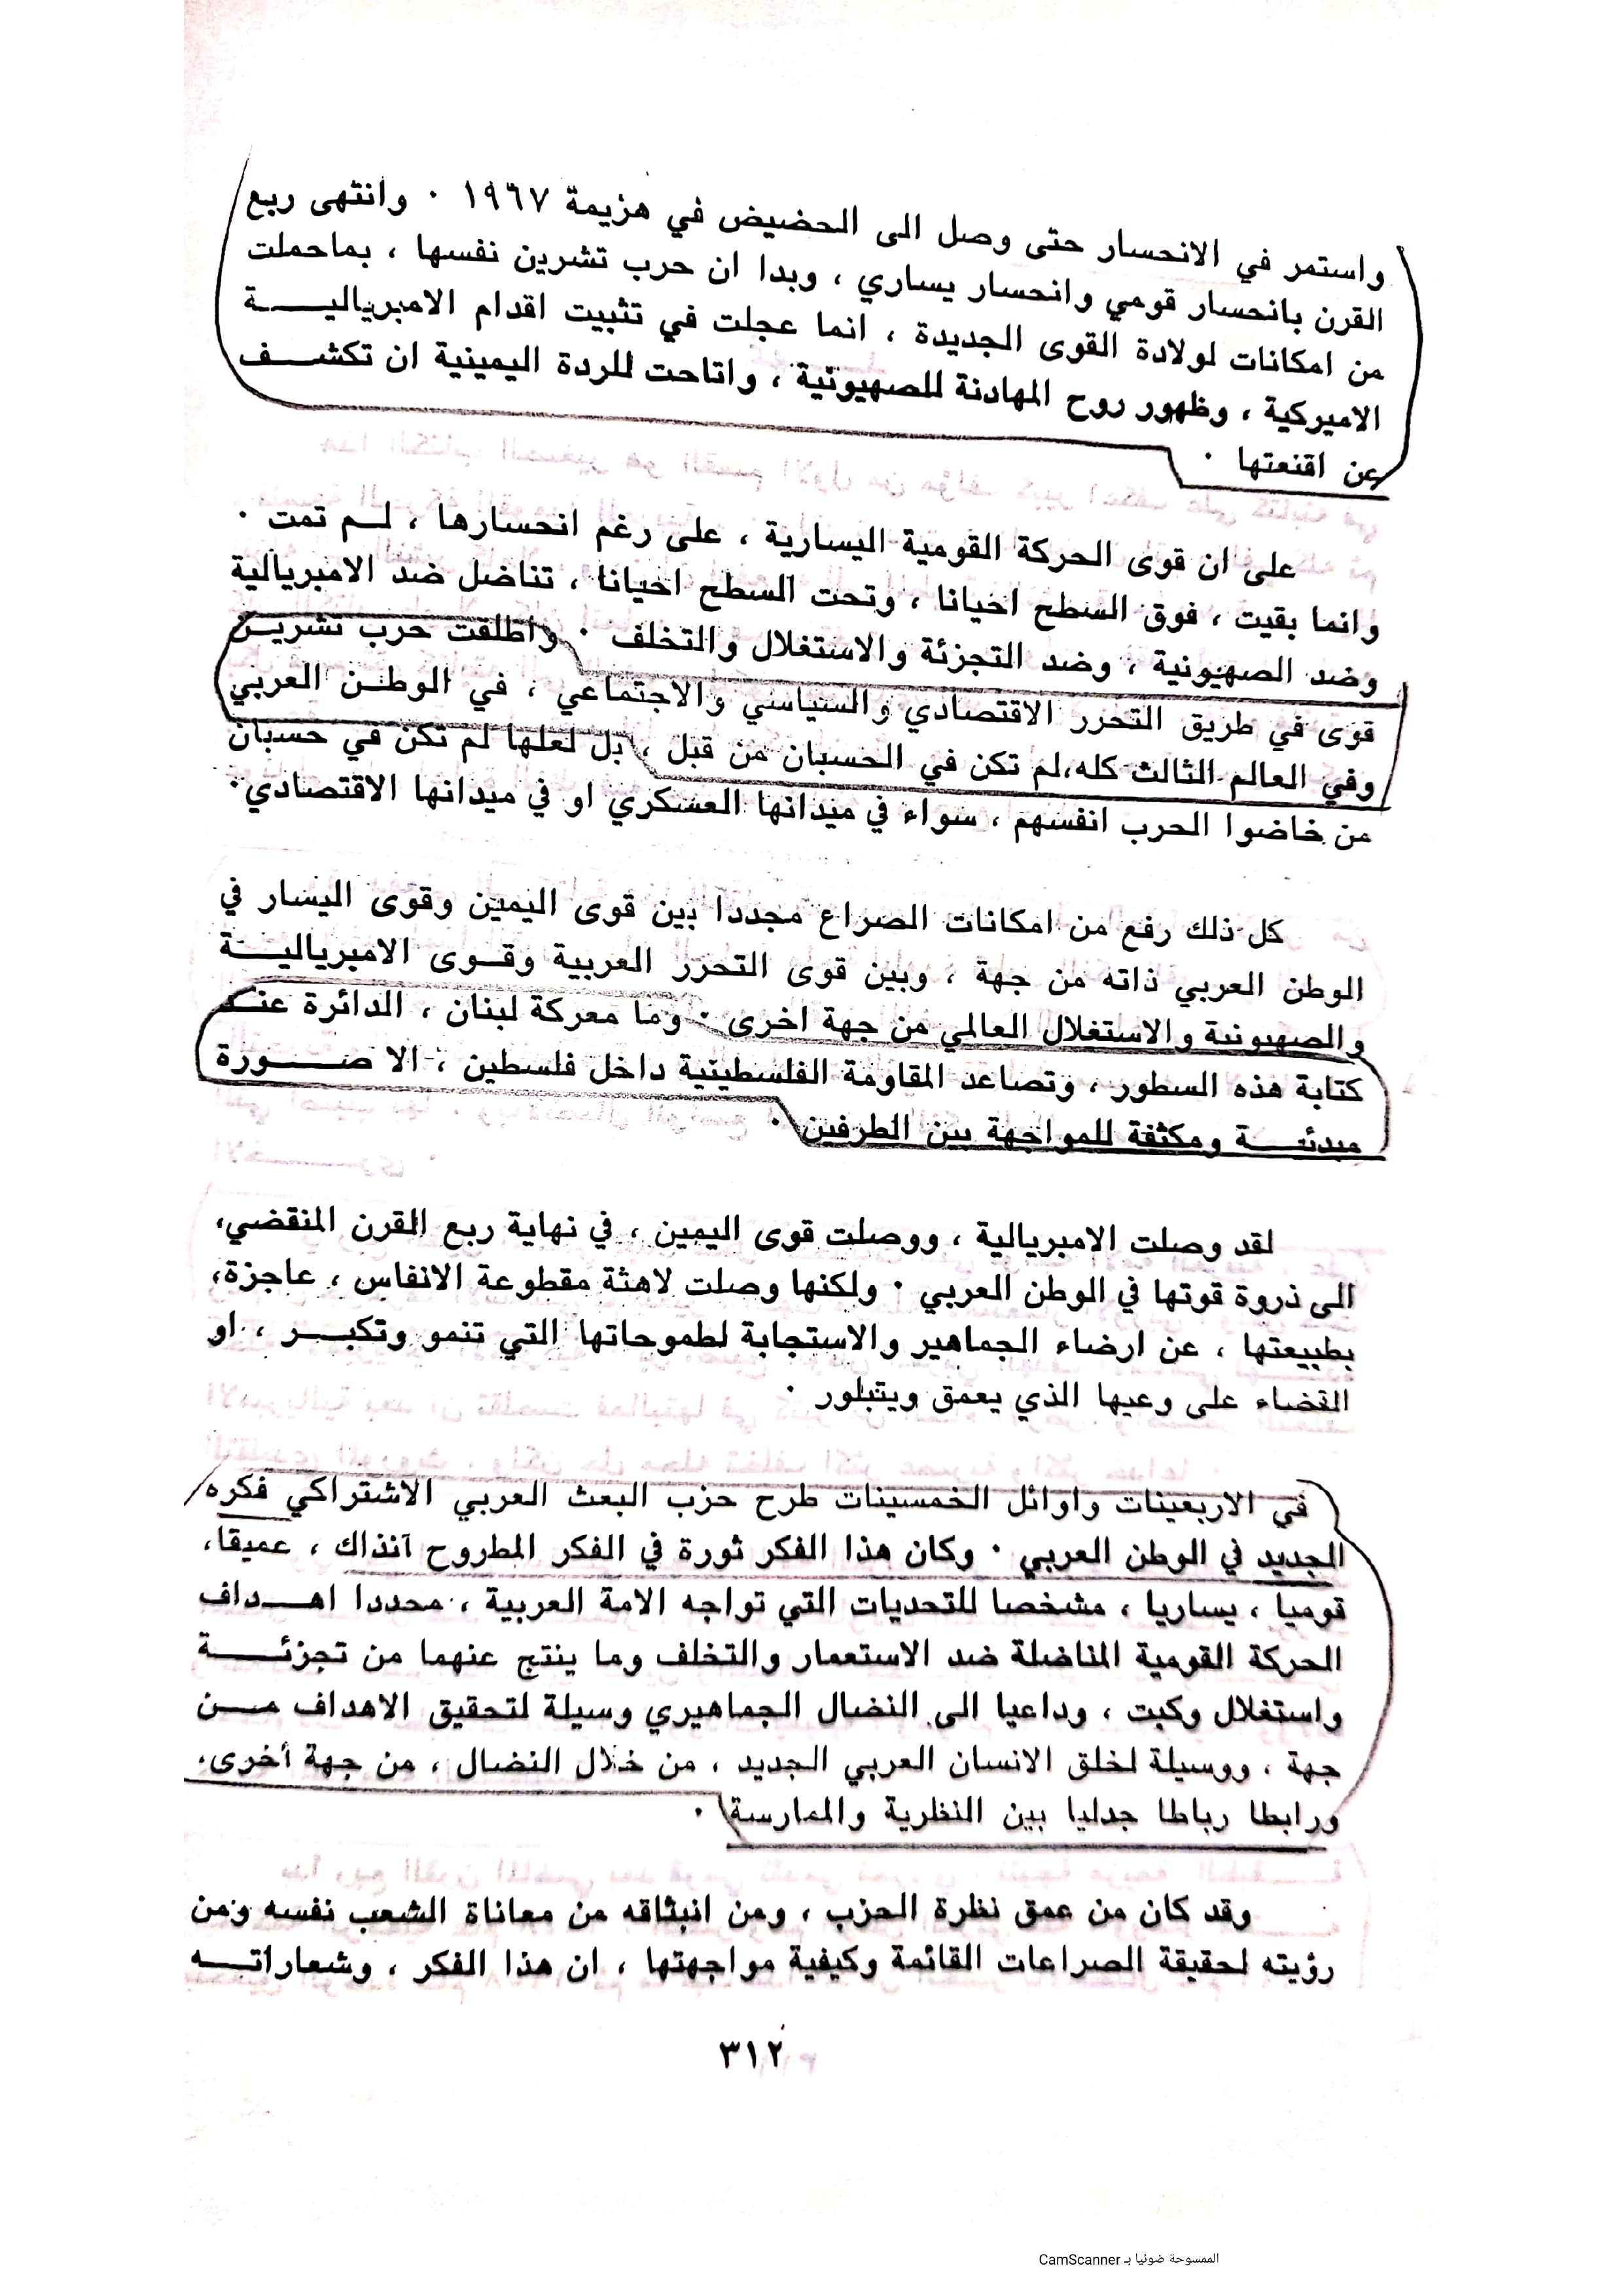 واستمر في الانحسار حتى وصل الى الحضيض في هزيمة ١٩٦٧ ٠ وانتهى ربع
القرن بانحسار قومي وانحسار يساري ، وبدا ان حرب تشرين نفسها ، بماحملت
من امكانات لولادة القوى الجديدة ، انما عجلت في تثبيت اقدام الامبرياليـــة
الاميركية ، وظهور روح المهادنة للصهيونية ، واتاحت للردة اليمينية ان تكشــف
عن اقنعتها ٠
على ان قوى الحركة القومية اليسارية ، على رغم انحسارها ، لـم تمت ٠
وانما بقيت ، فوق السطح احيانا ، وتحت السطح احيانا ، تناضل ضد الامبريالية
وضد الصهيونية ، وضد التجزئة والاستغلال والتخلف ٠ وأطلقت حرب تشريـن
قوى في طريق التحرر الاقتصادي والسياسي والاجتماعي ، في الوطـن العربي
وفي العالم الثالث كله،لم تكن في الحسبان من قبل ، بل لعلها لم تكن في حسبان
من خاضوا الحرب انفسهم ، سواء في ميدانها العسكري او في ميدانها الاقتصادي٠
كل ذلك رفع من امكانات الصراع مجددا بين قوى اليمين وقوى اليسار في
الوطن العربي ذاته من جهة ، وبين قوى التحرر العربية وقـوى الامبرياليـــة
والصهيونية والاستغلال العالمي من جهة اخرى ٠ وما معركة لبنان ، الدائرة عنـد
كتابة هذه السطور ، وتصاعد المقاومة الفلسطينية داخل فلسطين ، الا صـــورة
مبدئيـــة ومكثفة للمواجهة بين الطرفين ٠
لقد وصلت الامبريالية ، ووصلت قوى اليمين ، في نهاية ربع القرن المنقضي،
الى ذروة قوتها في الوطن العربي ٠ ولكنها وصلت لاهثة مقطوعة الانفاس ، عاجزة،
بطبيعتها ، عن ارضاء الجماهير والاستجابة لطموحاتها التي تنمو وتكبـــر ، او
القضاء على وعيها الذي يعمق ويتبلور ٠
في الاربعينات واوائل الخمسينات طرح حزب البعث العربي الاشتراكي فكره
الجديد في الوطن العربي ٠ وكان هذا الفكر ثورة في الفكر المطروح آنذاك ، عميقا،
قوميا ، يساريا ، مشخصا للتحديات التي تواجه الامة العربية ، محددا اهــداف
الحركة القومية المناضلة ضد الاستعمار والتخلف وما ينتج عنهما من تجزئـــة
واستغلال وكبت ، وداعيا الى النضال الجماهيري وسيلة لتحقيق الاهداف مــن
جهة ، ووسيلة لخلق الانسان العربي الجديد ، من خلال النضال ، من جهة أخرى،
ورابطا رباطا جدليا بين النظرية والممارسة ٠
وقد كان من عمق نظرة الحزب ، ومن انبثاقه من معاناة الشعب نفسه ومن
رؤيته لحقيقة الصراعات القائمة وكيفية مواجهتها ، ان هذا الفكر ، وشعاراتـــه
٣١٢
الممسوحة ضوئيا بـ CamScanner